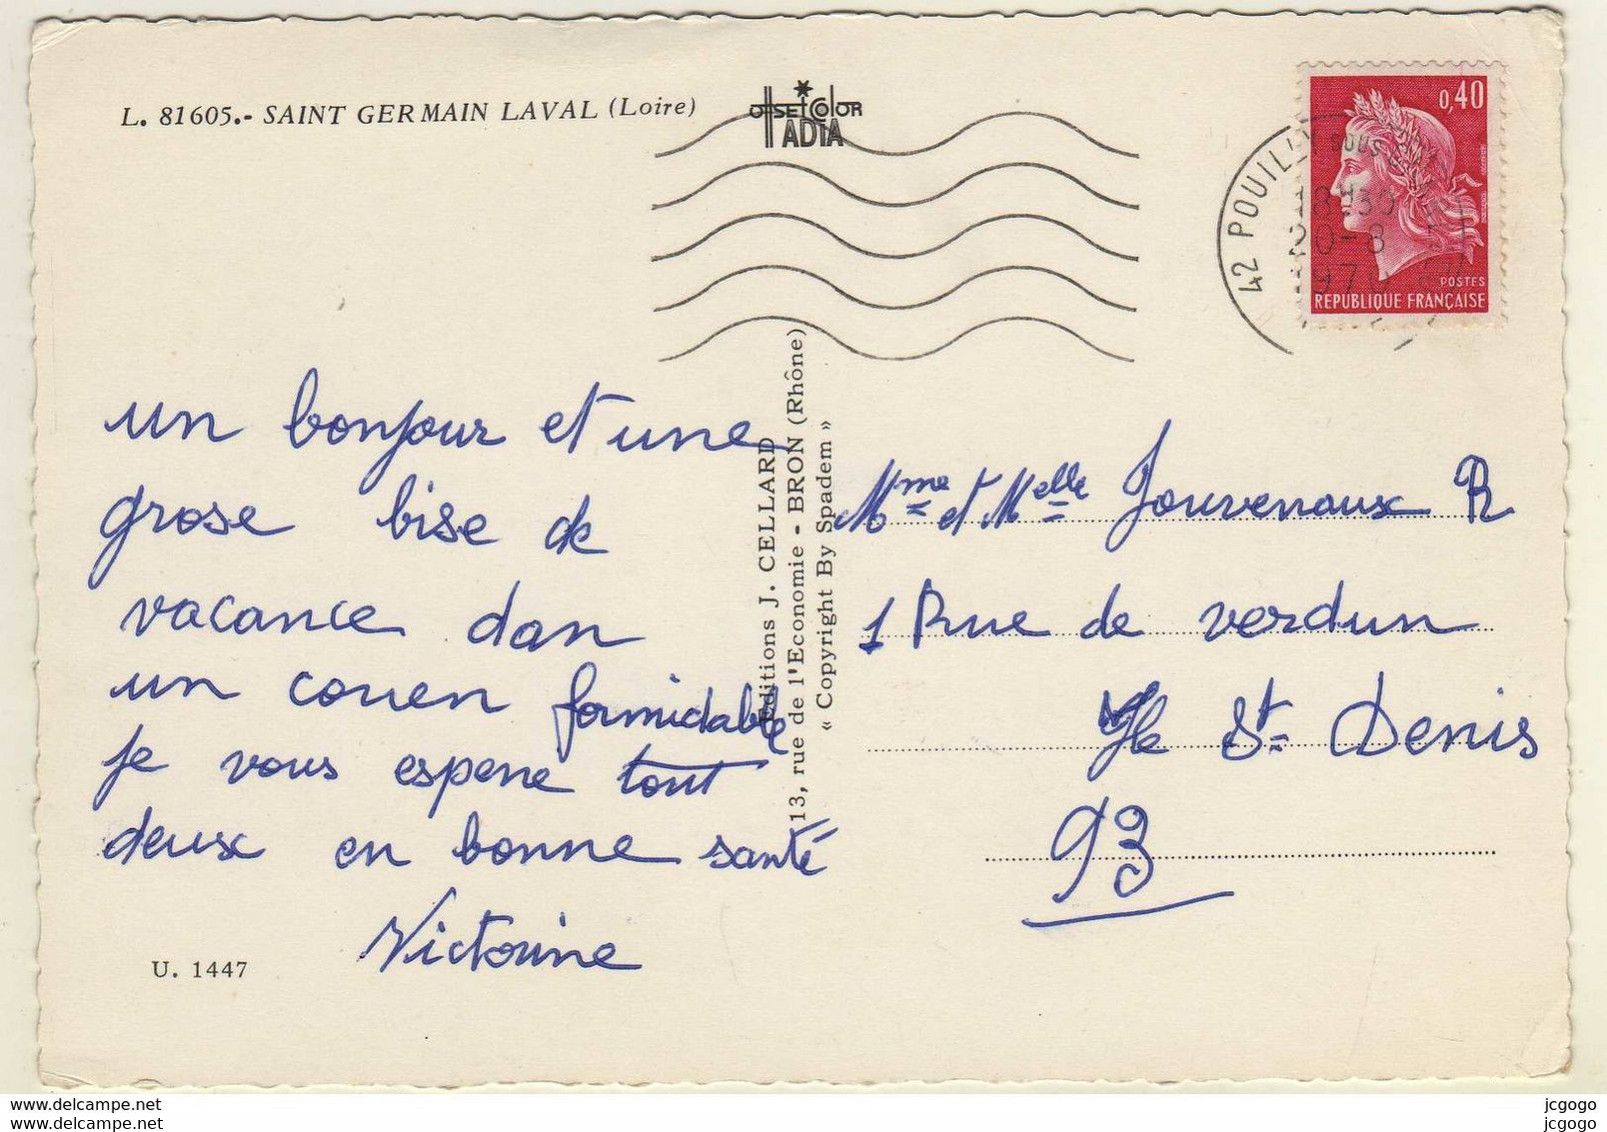 L. 81605.- SAINT GERMAIN LAVAL (Loire)
OffsetColor
ADIA
0,40
POSTES
REPUBLIQUE FRANÇAISE
42 POUILLY SOUS
18H30
20-8
197
un bonjour et une
grose bise de
vacance dan
un couen formidable
je vous espere tout
deux en bonne santé
Victorine
U. 1447
Editions J. CELLARD
13, rue de l'Economie - BRON (Rhône)
« Copyright By Spadem »
Mme et Melle Jouvenaux R
1 Rue de verdun
Ile St Denis
93
www.delcampe.net
www.delcampe.net
jcgogo
jcgogo